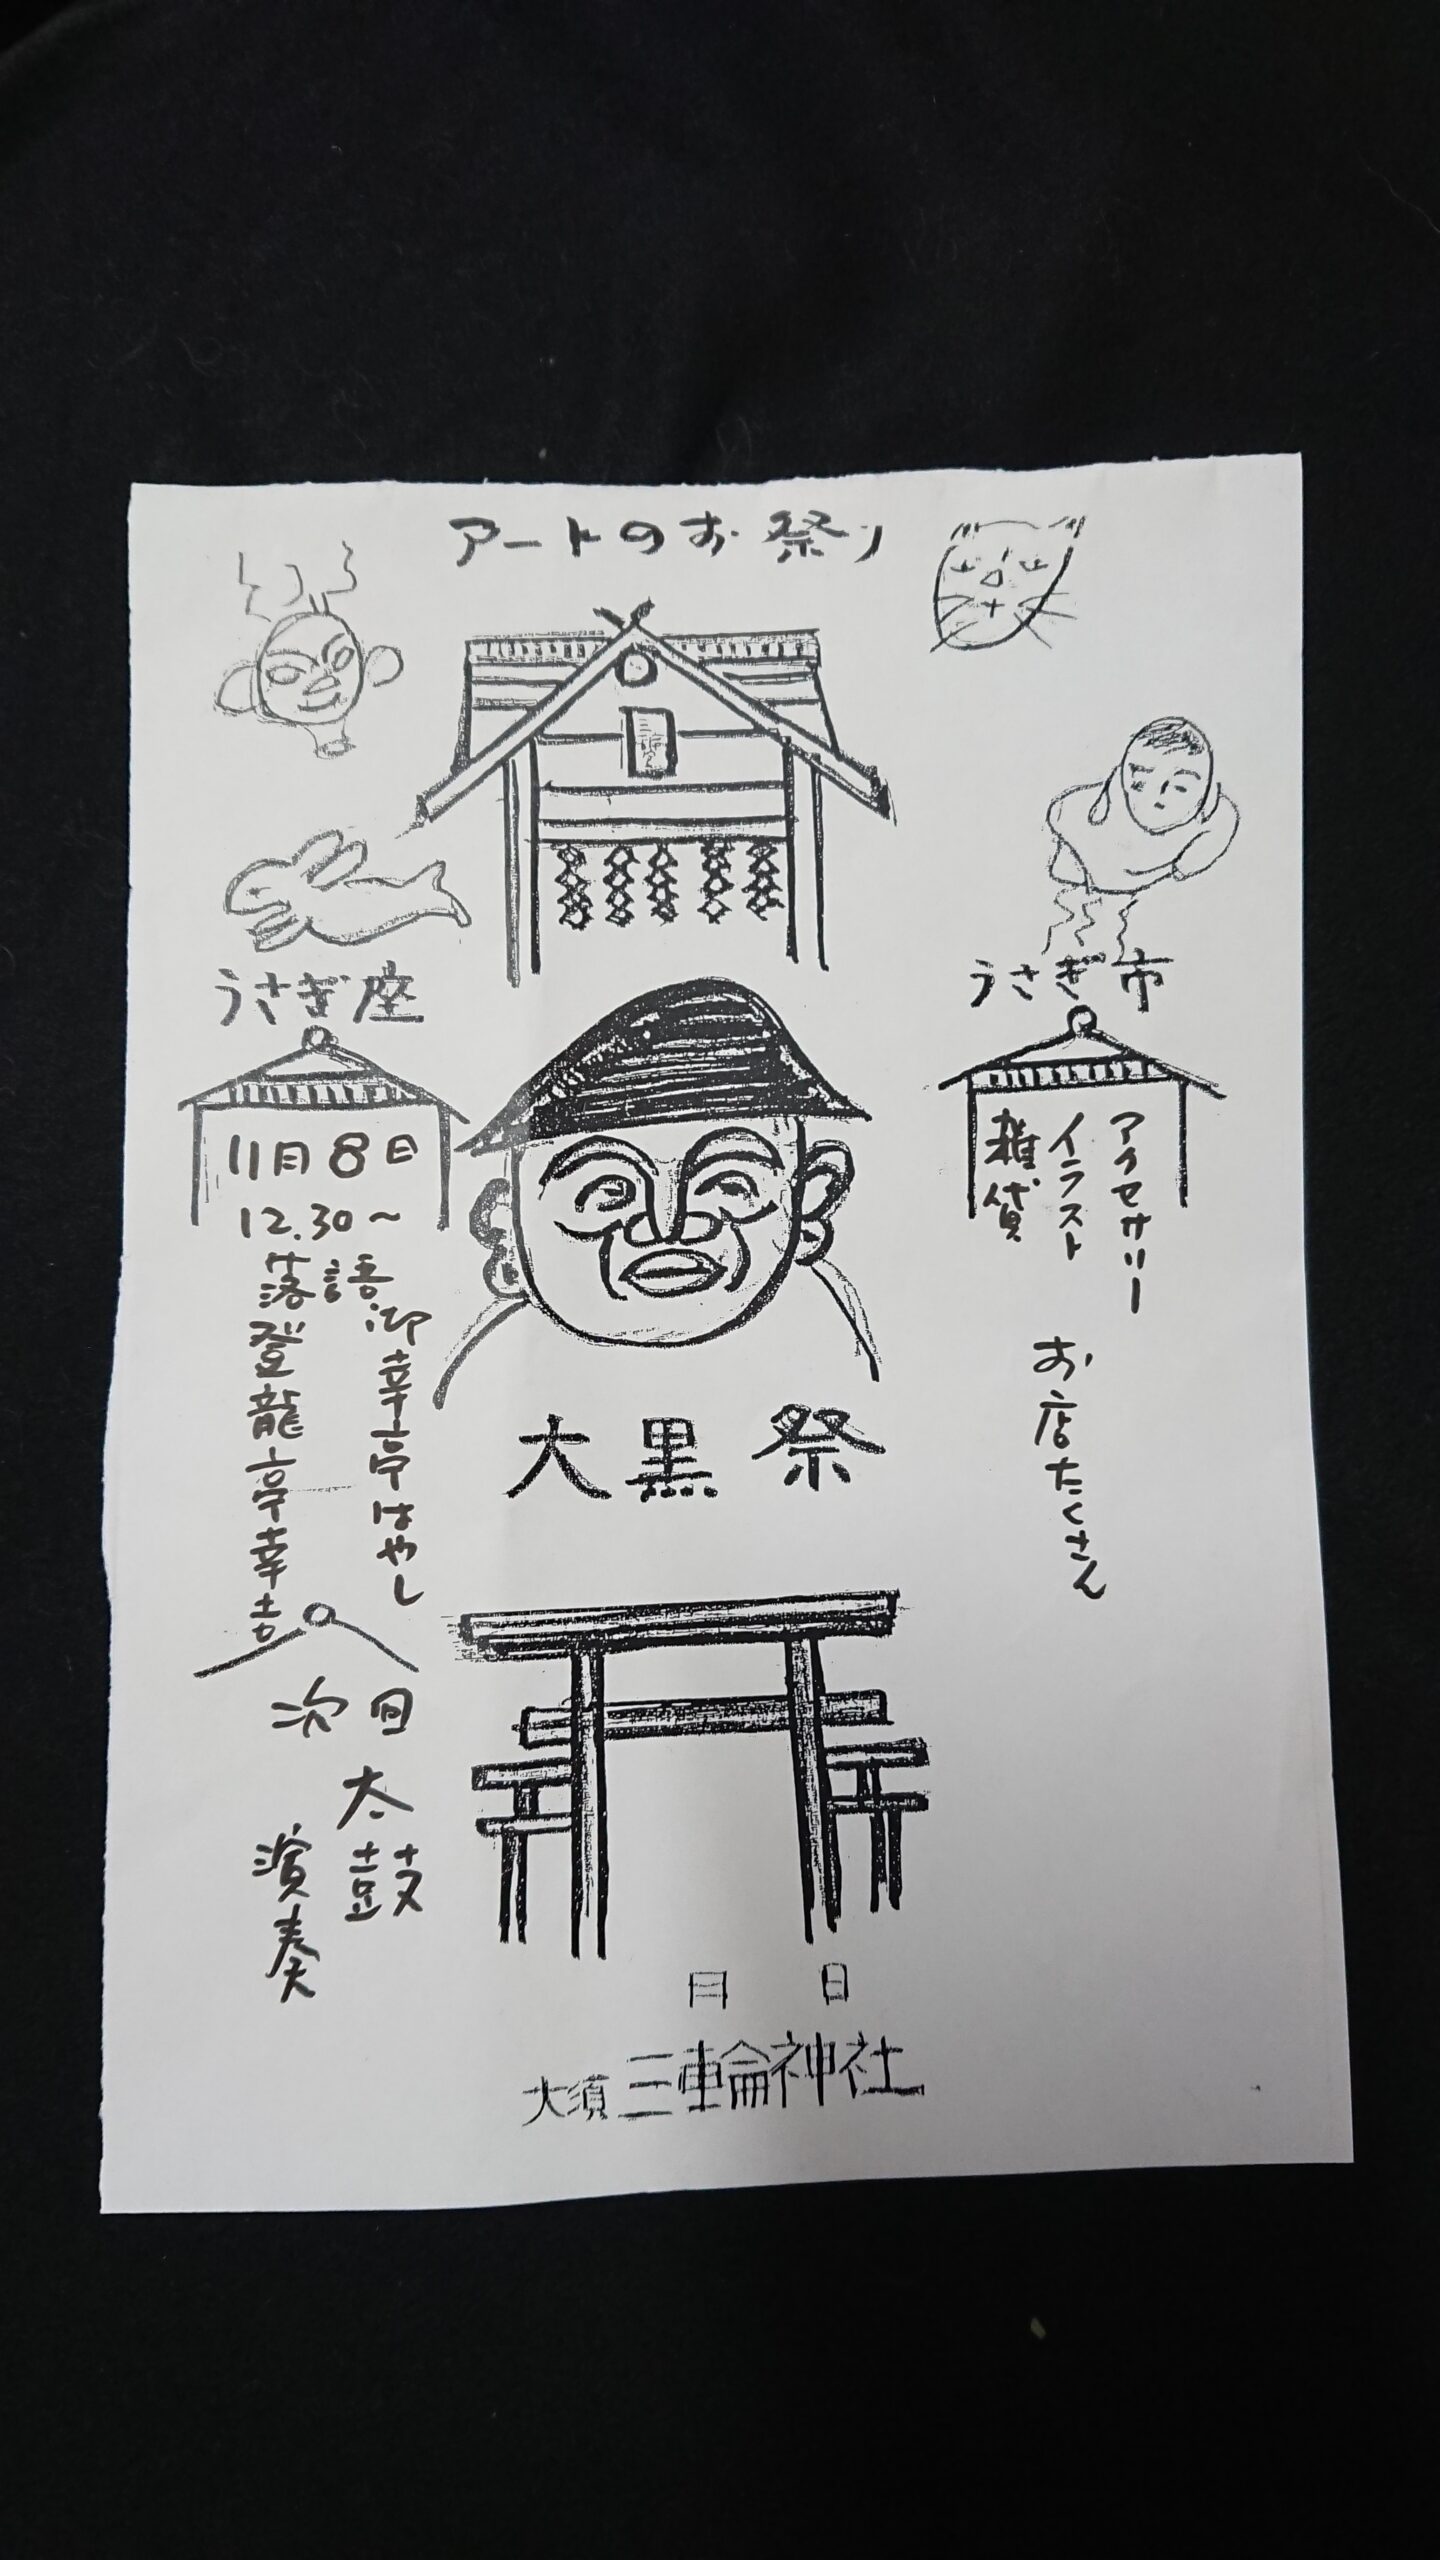 アートのお祭り
うさぎ座
11月8日
12.30～
落語
御幸亭はやし
登龍亭幸吉
次回
太鼓
演奏
うさぎ市
アクセサリー
イラスト
雑貨
お店たくさん
大黒祭
月 日
大須三輪神社